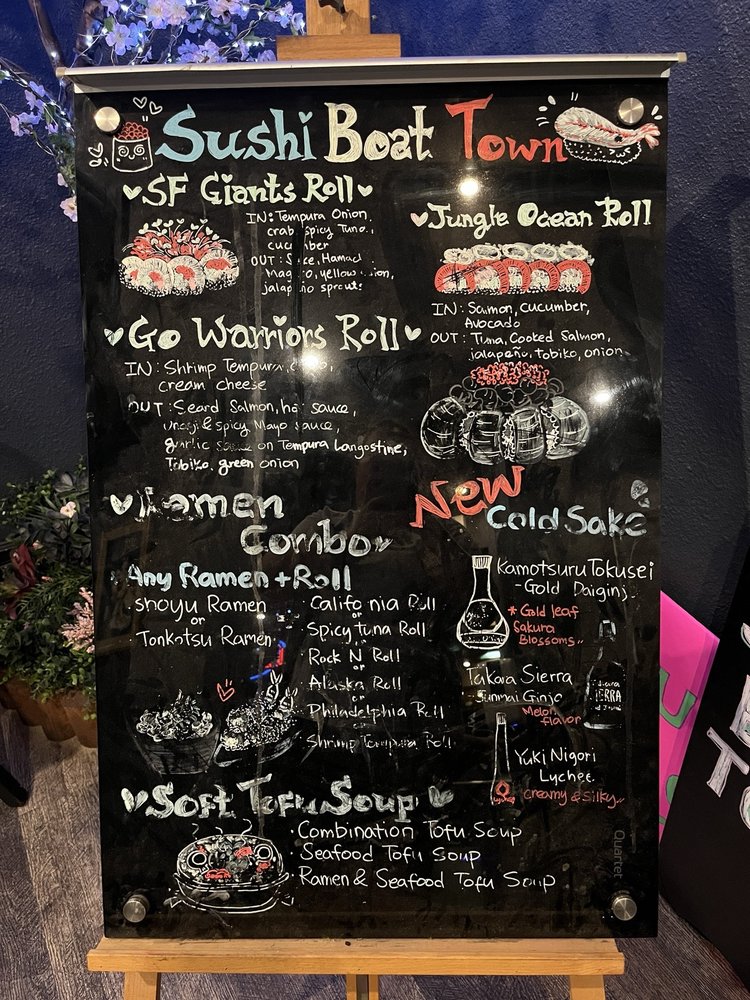 Sushi Boat Town
SF Giants Roll
IN: Tempura Onion,
crab, spicy Tuna,
cucumber
OUT:
yellow
jalapeño sprouts
Jungle Ocean Roll
IN: Salmon, cucumber,
Avocado
OUT: Tuna, Cooked Salmon,
jalapeño, tobiko, onion
Go Warriors Roll
IN: Shrimp Tempura,
cream cheese
OUT: Seard Salmon, sauce,
unagi & spicy Mayo sauce,
garlic sauce on Tempura Langostine,
Tobiko, green onion
Ramen
Combo
Any Ramen + Roll
Shoyu Ramen
or
Tonkotsu Ramen
California Roll
or
Spicy Tuna Roll
or
Rock N Roll
or
Alaska Roll
or
Philadelphia Roll
or
Shrimp Tempura Roll
New
Cold Sake
Kamotsuru Tokusei
-Gold
* Gold leaf
Sakura
Blossoms
Takara Sierra
Junmai Ginjo
Melon
flavor
Yuki Nigori
Lychee
creamy & silky
Soft Tofu Soup
· Combination Tofu Soup
· Seafood Tofu Soup
· Ramen & Seafood Tofu Soup
Quartet